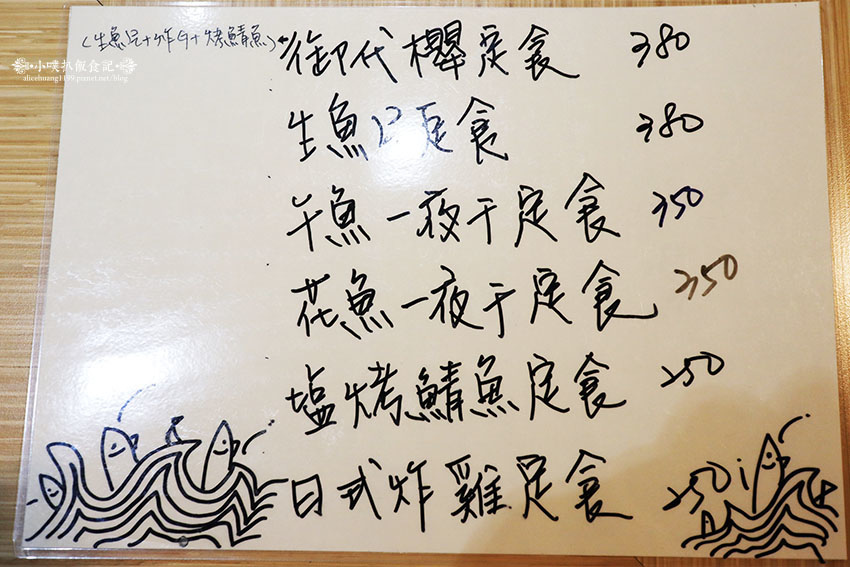 (生魚片+炸物+烤鯖魚) 御代櫻定食 380
小噗熱飯食記
alicehuang1199.pixnet.net/blog
生魚片定食 380
午魚一夜干定食 350
花魚一夜干定食 350
塩烤鯖魚定食 250
日式炸雞定食 250